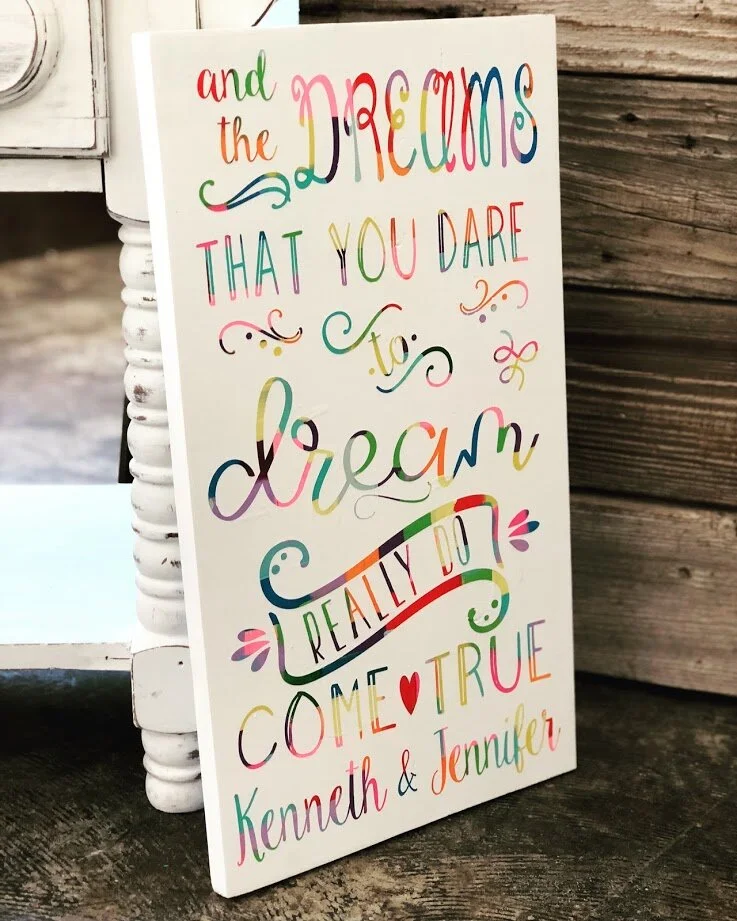 and
the DREAMS
THAT YOU DARE
to
dream
REALLY DO
COME ♥ TRUE
Kenneth & Jennifer